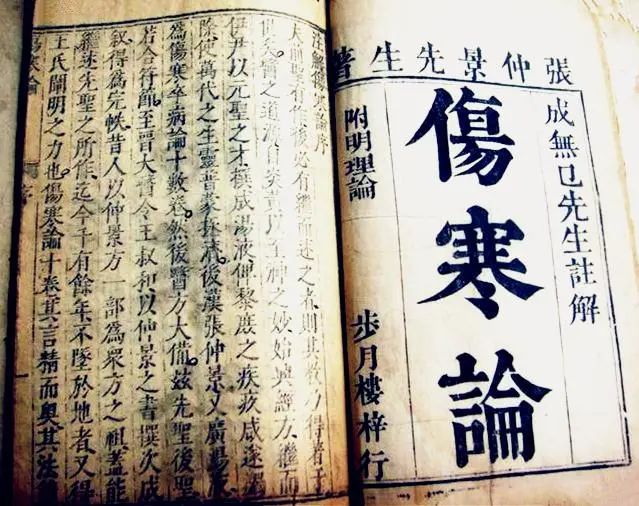 張仲景先生著
成無已先生註解
傷寒論
附明理論
步月樓梓行
注解傷寒論序
夫前聖有作後必有繼而述之者則其教乃得著于
世矣醫之道源自炎黃以至神之妙始興經方繼而
伊尹以元聖之才撰成湯液俾黎庶之疾疚咸遂蠲
除使萬代之生靈普蒙拯濟後漢張仲景又廣湯液
爲傷寒卒病論十數卷然後醫方大備茲先聖後聖
若合符節至晉大醫令王叔和以仲景之書撰次成
叙得爲完帙昔人以仲景方一部爲眾方之祖蓋能
繼述先聖之所能迄今千有餘年不墜於地者又得
王氏闡明之力也傷寒論十卷其言精而奧其法簡
傷寒論
序